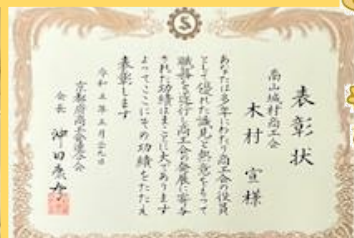 表彰状
南山城村商工会
木村 宣 様
あなたは多年にわたり商工会の役員
として優れた識見と熱意をもって
職務を遂行し商工会の発展に寄与
された功績はまことに大であります
よってここにその功績をたたえ
表彰します
令和五年五月廿九日
京都府商工会連合会
会長 沖田康彦